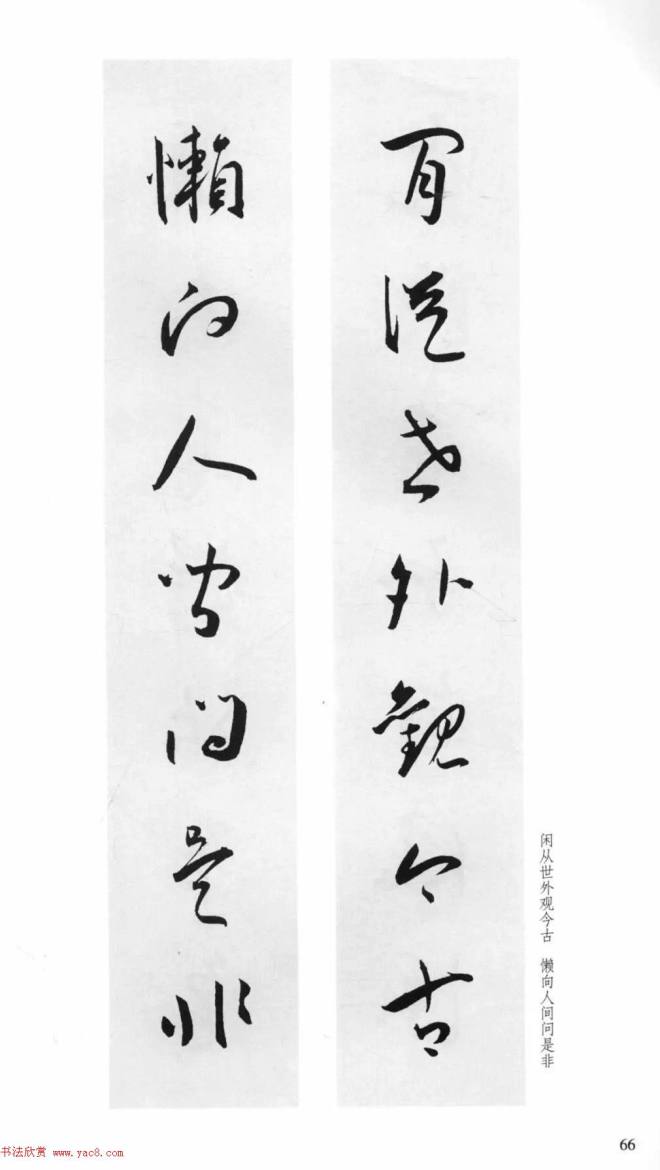 閒從世外觀今古
懶向人間問是非
闲从世外观今古　懒向人间问是非
66
书法欣赏 www.yac8.com